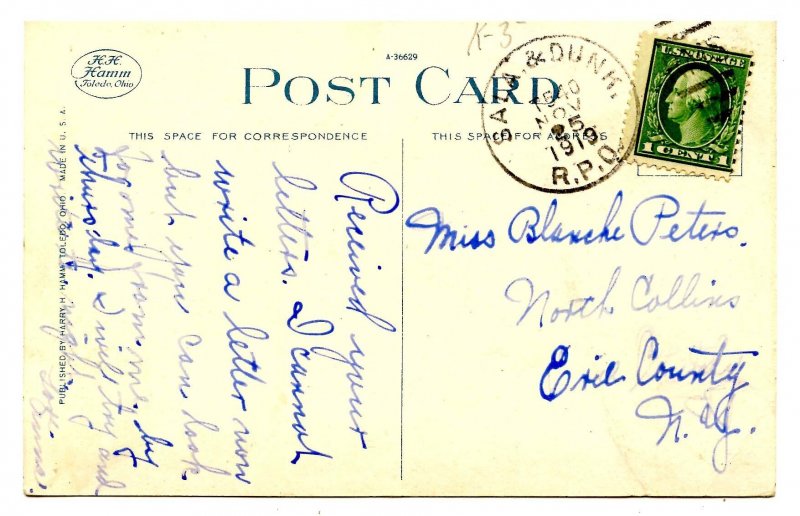 H.H.
Hamm
Toledo, Ohio
A-36629
POST CARD
THIS SPACE FOR CORRESPONDENCE
THIS SPACE FOR ADDRESS
PUBLISHED BY HARRY H. HAMM, TOLEDO, OHIO. MADE IN U.S.A.
K-3-
& DUNK.
NOV
25
1919
R.P.O.
U.S. POSTAGE
1 CENT 1
Received your
letters. I cannot
write a letter now
but you can look
for one from me, by
Thursday. I will try and
Miss Blanche Peters.
North Collins
Erie County
N.Y.